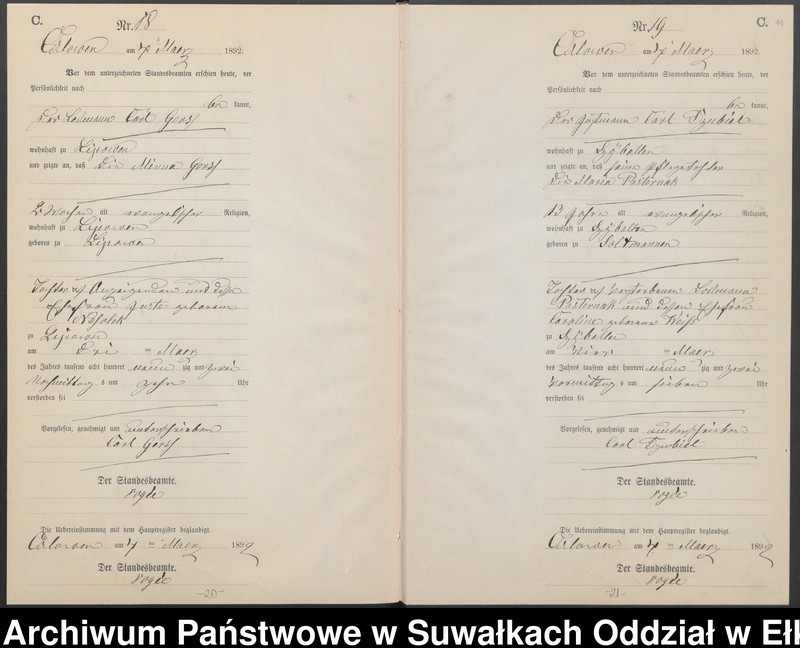 C.
Nr. 18
am 4ten Maerz 1892
Vor dem unterzeichneten Standesbeamten erschien heute, der
Persönlichkeit nach
be kannt,
der Losmann Carl Gersch
wohnhaft zu
und zeigte an, daß die Minna Gersch
2 Wochen alt evangelischer Religion,
wohnhaft zu
geboren zu
Tochter des Anzeigenden und dessen
Ehefrau Juste geborenen
zu
am drei ten Maerz
des Jahres tausend acht hundert neun zig und zwei
Nachmittags um zehn Uhr
verstorben sei
Vorgelesen, genehmigt und unterschrieben
Carl Gersch
Der Standesbeamte.
Die Uebereinstimmung mit dem Hauptregister beglaubigt.
am 4 ten Maerz 1892
Der Standesbeamte.
-20-
C.
Nr. 19
am 4ten Maerz 1892.
Vor dem unterzeichneten Standesbeamten erschien heute, der
Persönlichkeit nach
be kannt,
der Carl
wohnhaft zu Szyballen
und zeigte an, daß seine Pflegetochter
die Maria Pasternak
13 Jahre alt evangelischer Religion,
wohnhaft zu Szyballen
geboren zu
Tochter des verstorbenen Losmann
Pasternak und dessen Ehefrau
Caroline geborenen Weiß
zu Szyballen
am vier ten Maerz
des Jahres tausend acht hundert neun zig und zwei
Vormittags um sieben Uhr
verstorben sei
Vorgelesen, genehmigt und unterschrieben
Carl
Der Standesbeamte.
Die Uebereinstimmung mit dem Hauptregister beglaubigt.
am 4 ten Maerz 1892
Der Standesbeamte.
-21-
Archiwum Państwowe w Suwałkach Oddział w Eł